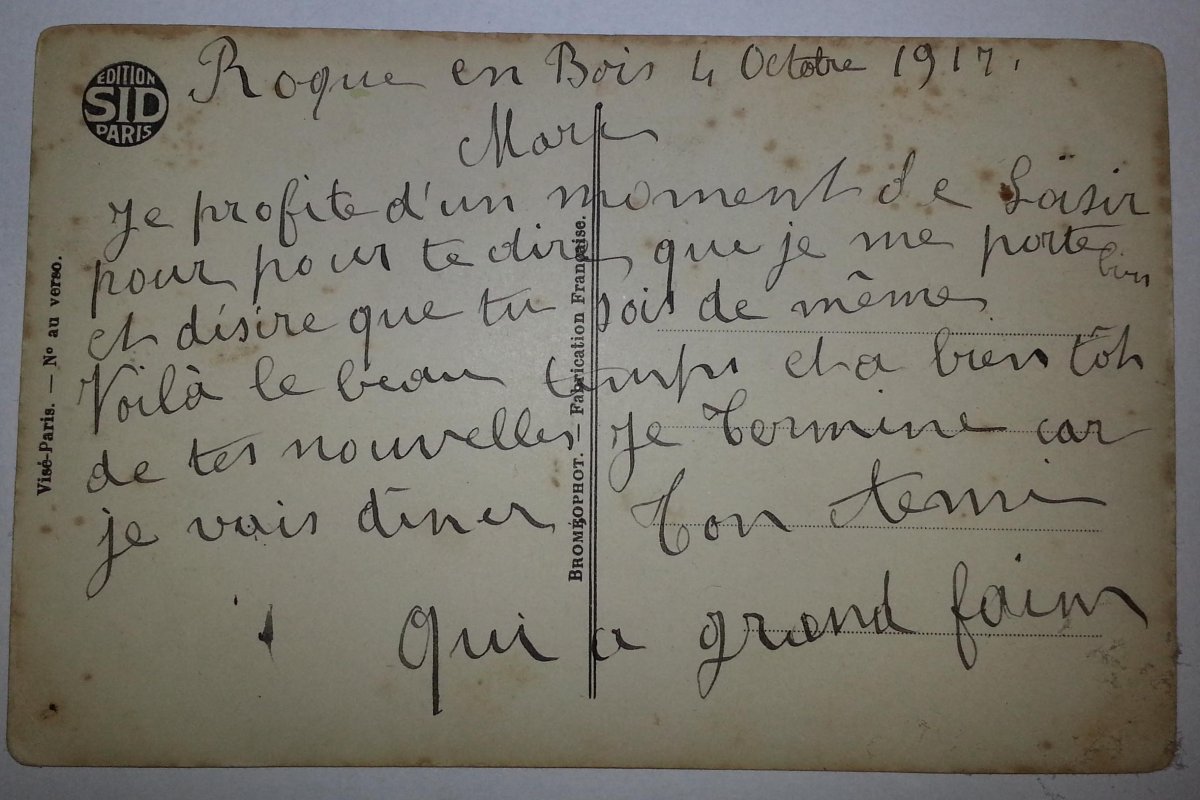 EDITION
SID
PARIS
Roque en Bois 4 Octobre 1917.
Marc
Je profite d'un moment de Loisir
pour pour te dire que je me porte bien
et désire que tu sois de même
Voilà le beau temps et a bien tôt
de tes nouvelles Je termine car
je vais dîner Ton
Qui a grand faim
Visé-Paris. — Nº au verso.
BROMÉOPHOT. — Fabrication Française.